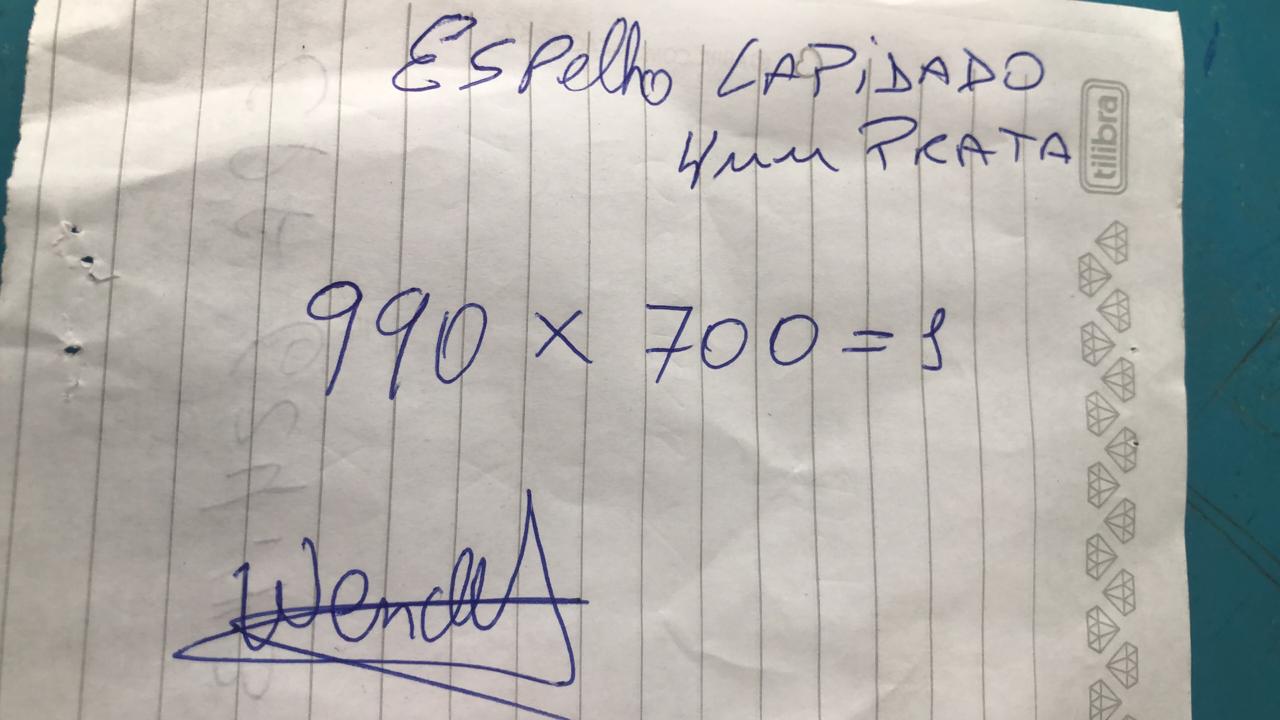 Espelho LAPiDADO
4mm PRATA
tilibra
990 x 700 = 1